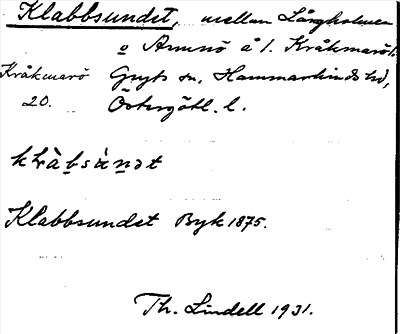 Klabbsundet, mellan Långholmen
o Armnö å l. Kråkmarö l.
Kråkmarö Gryts sn, Hammarkinds hd,
20. Östergötl. l.
Klabbsundet Byk 1875.
Th. Lindell 1931.